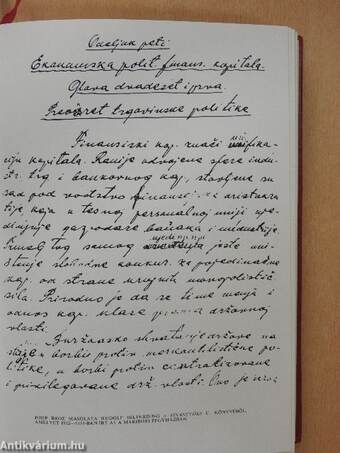 Odeljak peti
Ekonomska polit. finans. kapitala.
Glava dvadeset i prva.
Preokret trgovinske politike
Finansiski kap. znači unifika-
ciju kapitala. Ranije odvojene sfere indu-
str. trg i bankovnog kap, stavljene su
sad pod vodstvo finansi aristokra-
tije, koja u tesnoj personalnoj uniji uje-
dinjuje gazdovare banaka i industrije.
samog ujedinjenja jeste uni-
štenje slobodne konkur. za pojedinačne
kap. od strane krupnih monopolistič
sila. Prirodno je da se time menja i
odnos kap. klase prema državnoj
vlasti.
Buržoasko shvatanje države na-
staje u borbi protiv merkantilističke po-
litike, u borbi protiv centralizovane
i privilegovane drž. vlasti. Ono je
JOSIP BROZ MÁSOLATA RUDOLF HILFERDING: A FINÁNCTŐKE C. KÖNYVÉBŐL,
AMELYET BAN ÍRT ÁT A MARIBORI FEGYHÁZBAN
Antikvárium.hu